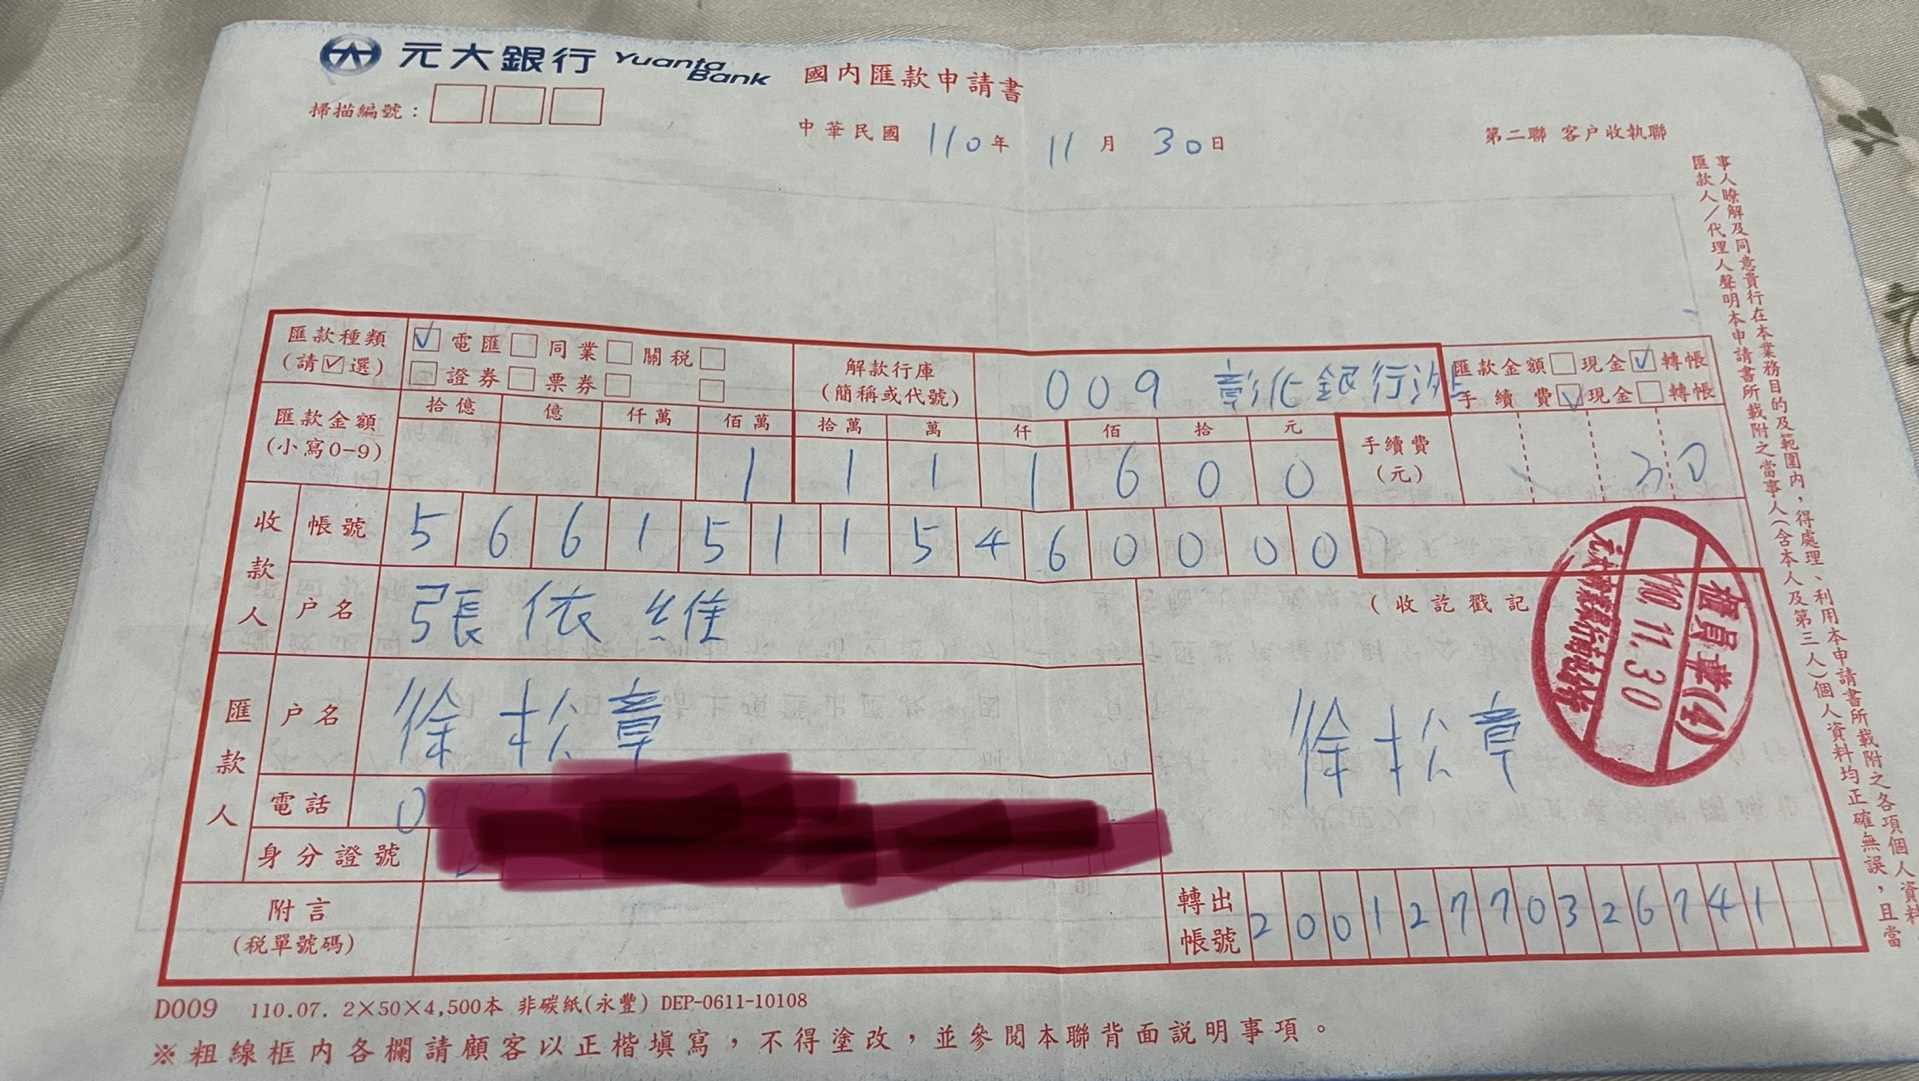 元大銀行 Yuanta Bank 國內匯款申請書
掃描編號：
中華民國 110年 11月 30日
第二聯 客戶收執聯
匯款種類
(請☑選)
☑電匯□同業□關稅□
□證券□票券□ □
解款行庫
(簡稱或代號)
009 彰化銀行
匯款金額□現金☑轉帳
手續費☑現金□轉帳
匯款金額
(小寫0-9)
拾億 億 仟萬 佰萬 拾萬 萬 仟 佰 拾 元
1 1 1 1 6 0 0
手續費
(元)
30
收款人
帳號 5 6 6 1 5 1 1 5 4 6 0 0 0 0
戶名 張依維
(收訖戳記
櫃員章(4)
110.11.30
匯款人
戶名 徐松章
徐松章
電話 0
身分證號
附言
(稅單號碼)
轉出帳號 2 0 0 1 2 7 7 0 3 2 6 7 4 1
D009 110.07. 2×50×4,500本 非碳紙(永豐) DEP-0611-10108
※粗線框內各欄請顧客以正楷填寫，不得塗改，並參閱本聯背面說明事項。
匯款人／代理人聲明本申請書所載附之當事人(含本人及第三人)個人資料均正確無誤，且當
事人瞭解及同意貴行在本業務目的及範圍內，得處理、利用本申請書所載附之各項個人資料